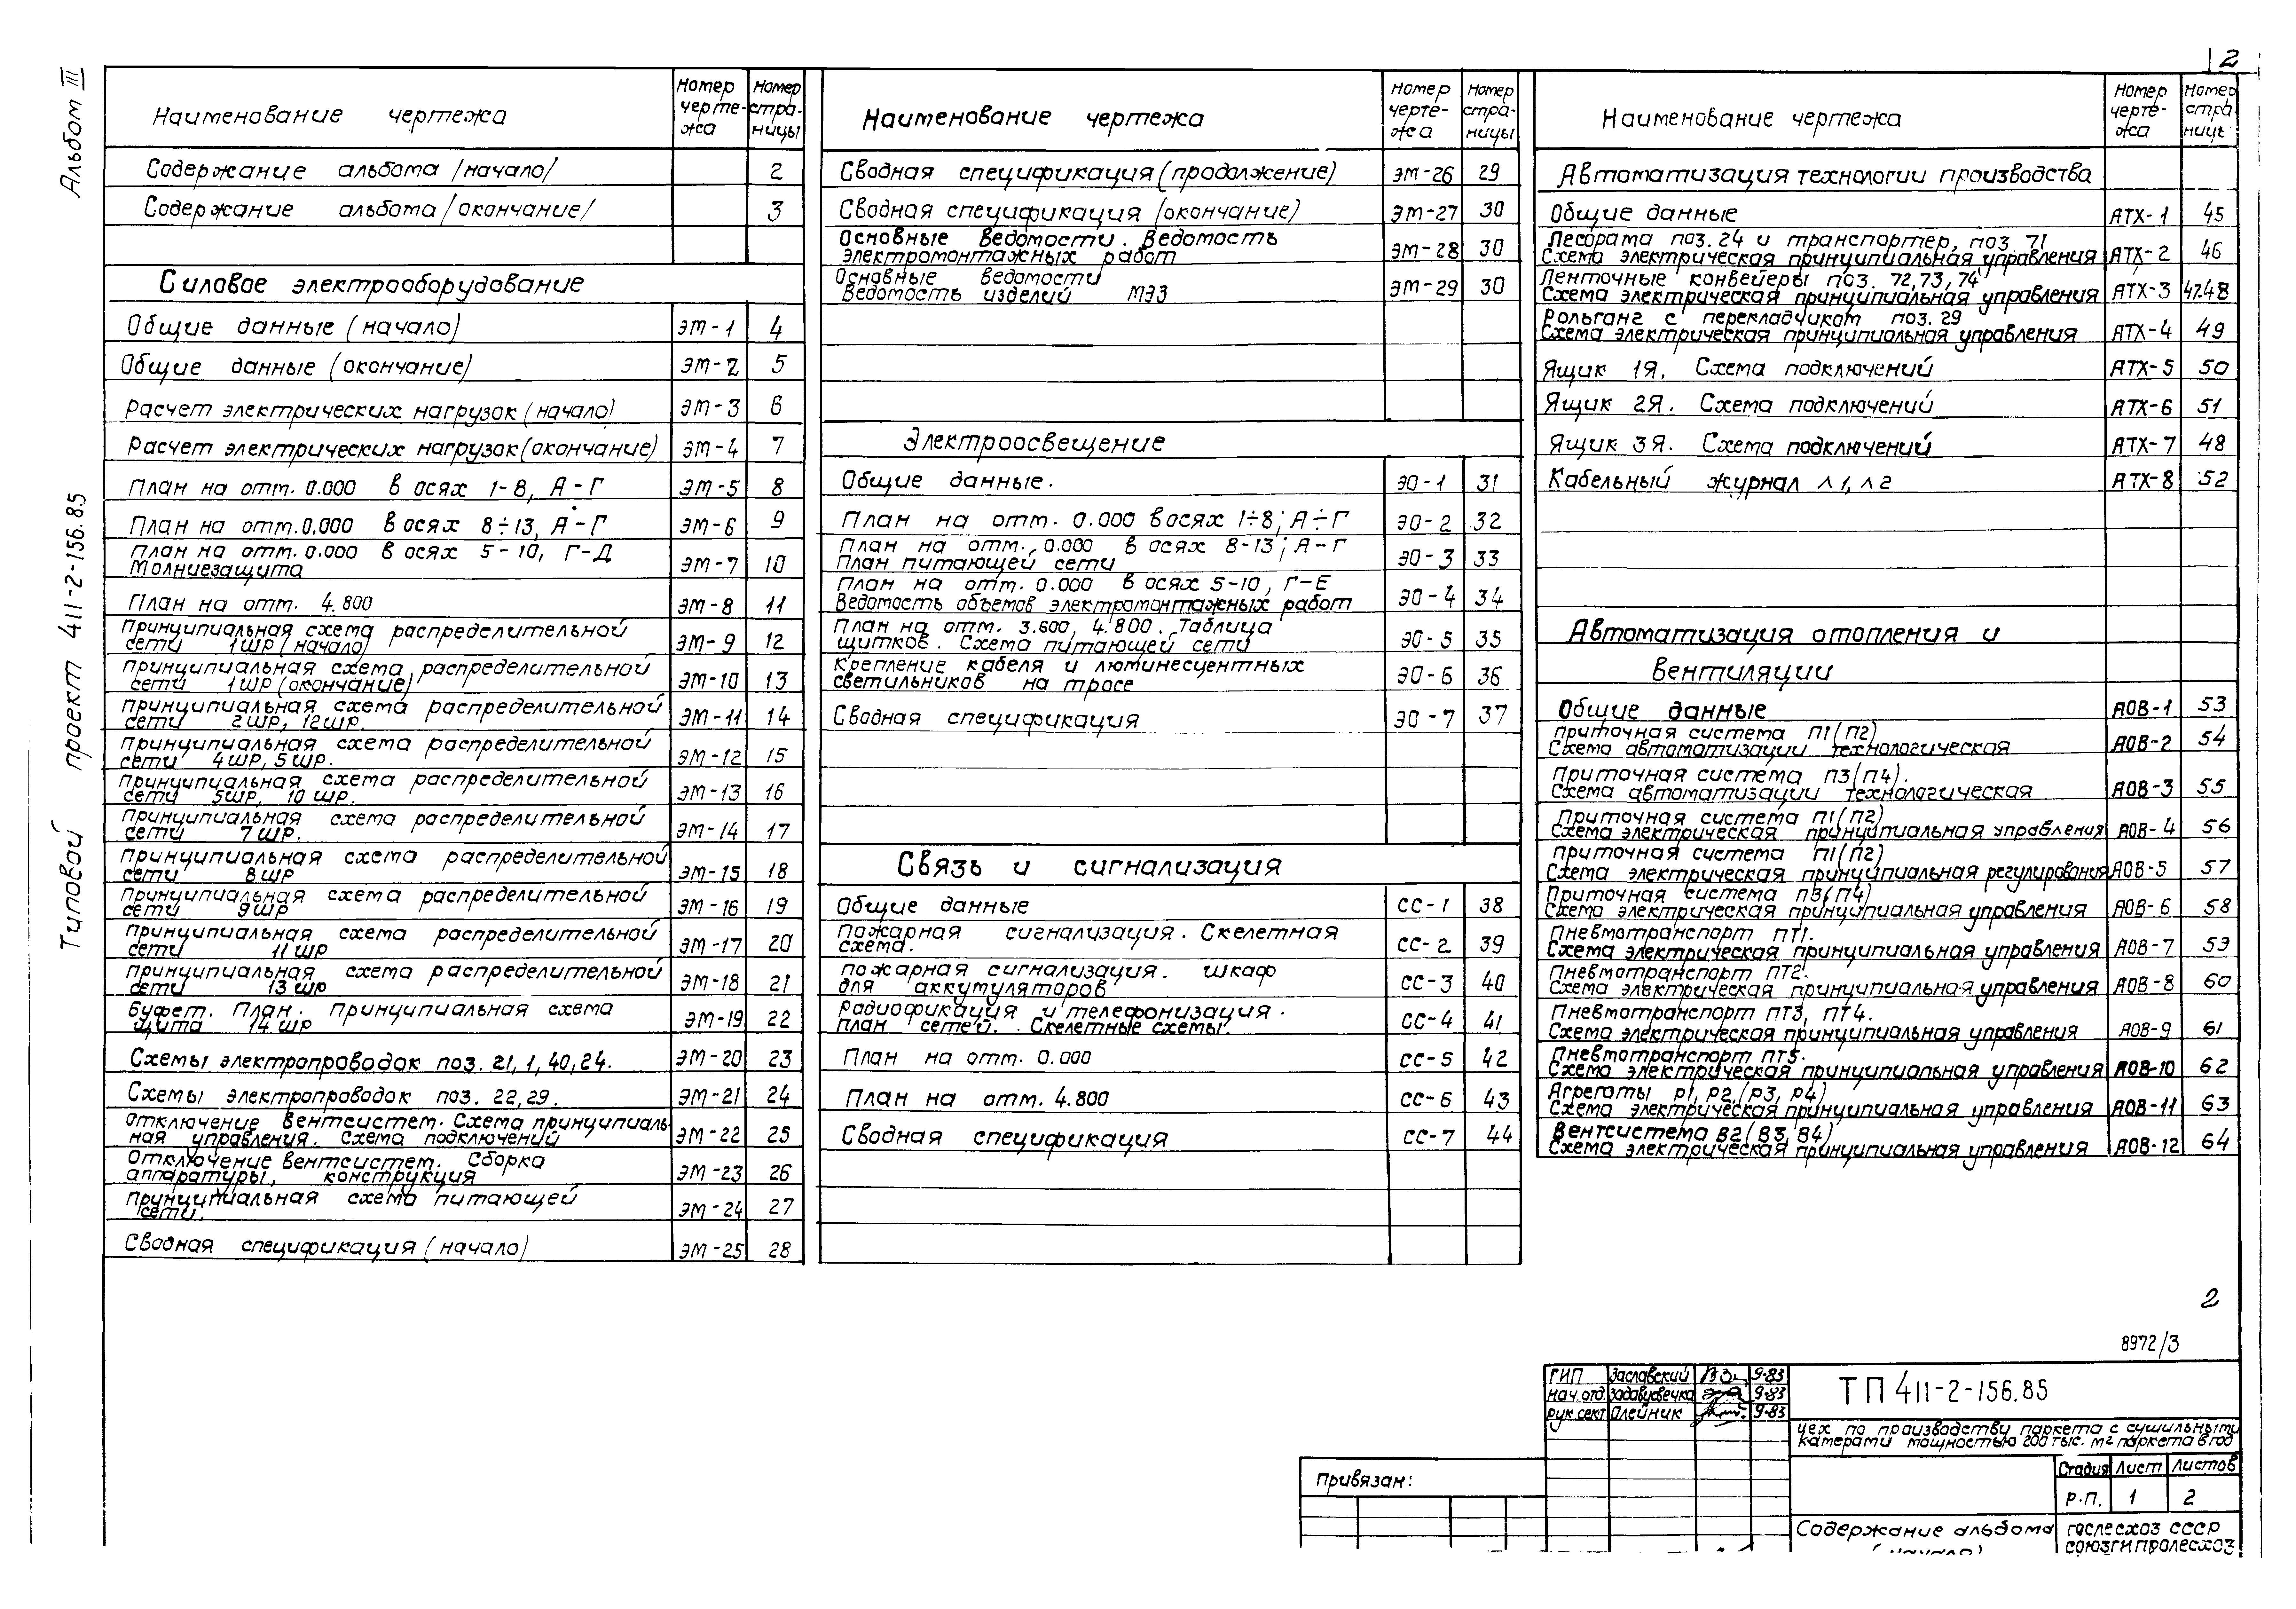 2
Альбом III
Типовой проект 411-2-156.85
Наименование чертежа
Номер чертежа
Номер страницы
Содержание альбома /начало/ 2
Содержание альбома /окончание/ 3
Силовое электрооборудование
Общие данные (начало) ЭМ-1 4
Общие данные (окончание) ЭМ-2 5
Расчет электрических нагрузок (начало) ЭМ-3 6
Расчет электрических нагрузок (окончание) ЭМ-4 7
План на отм. 0.000 в осях 1-8, А-Г ЭМ-5 8
План на отм. 0.000 в осях 8÷13, А-Г ЭМ-6 9
План на отм. 0.000 в осях 5-10, Г-Д
Молниезащита ЭМ-7 10
План на отм. 4.800 ЭМ-8 11
Принципиальная схема распределительной
сети 1ШР (начало) ЭМ-9 12
Принципиальная схема распределительной
сети 1ШР (окончание) ЭМ-10 13
Принципиальная схема распределительной
сети 2ШР, 12ШР. ЭМ-11 14
Принципиальная схема распределительной
сети 4ШР, 5ШР. ЭМ-12 15
Принципиальная схема распределительной
сети 5ШР, 10ШР. ЭМ-13 16
Принципиальная схема распределительной
сети 7ШР. ЭМ-14 17
Принципиальная схема распределительной
сети 8ШР ЭМ-15 18
Принципиальная схема распределительной
сети 9ШР ЭМ-16 19
Принципиальная схема распределительной
сети 11ШР ЭМ-17 20
Принципиальная схема распределительной
сети 13ШР ЭМ-18 21
Буфет. План. Принципиальная схема
щита 14ШР ЭМ-19 22
Схемы электропроводок поз. 21, 1, 40, 24. ЭМ-20 23
Схемы электропроводок поз. 22, 29. ЭМ-21 24
Отключение вентсистем. Схема принципиаль-
ная управления. Схема подключений ЭМ-22 25
Отключение вентсистем. Сборка
аппаратуры, конструкция ЭМ-23 26
Принципиальная схема питающей
сети. ЭМ-24 27
Сводная спецификация (начало) ЭМ-25 28
Наименование чертежа
Номер чертe-
жа
Номер стра-
ницы
Сводная спецификация (продолжение) ЭМ-26 29
Сводная спецификация (окончание) ЭМ-27 30
Основные ведомости. Ведомость
электромонтажных работ ЭМ-28 30
Основные ведомости
Ведомость изделий МЭЗ ЭМ-29 30
Электроосвещение
Общие данные. ЭО-1 31
План на отм. 0.000 в осях 1÷8; А÷Г ЭО-2 32
План на отм. 0.000 в осях 8-13; А-Г
План питающей сети ЭО-3 33
План на отм. 0.000 в осях 5-10, Г-Е
Ведомость объемов электромонтажных работ ЭО-4 34
План на отм. 3.600, 4.800. Таблица
щитков. Схема питающей сети ЭО-5 35
Крепление кабеля и люминесцентных
светильников на тросе ЭО-6 36
Сводная спецификация ЭО-7 37
Связь и сигнализация
Общие данные СС-1 38
Пожарная сигнализация. Скелетная
схема. СС-2 39
Пожарная сигнализация. Шкаф
для аккумуляторов СС-3 40
Радиофикация и телефонизация.
План сетей. Скелетные схемы. СС-4 41
План на отм. 0.000 СС-5 42
План на отм. 4.800 СС-6 43
Сводная спецификация СС-7 44
Наименование чертежа
Номер черте-
жа
Номер стра-
ницы
Автоматизация технологии производства
Общие данные АТХ-1 45
Лесорама поз. 24 и транспортер, поз. 71
Схема электрическая принципиальная управления АТХ-2 46
Ленточные конвейеры поз. 72, 73, 74
Схема электрическая принципиальная управления АТХ-3 47.48
Рольганг с перекладчиком поз. 29
Схема электрическая принципиальная управления АТХ-4 49
Ящик 1Я, Схема подключений АТХ-5 50
Ящик 2Я. Схема подключений АТХ-6 51
Ящик 3Я. Схема подключений АТХ-7 48
Кабельный журнал л1, л2 АТХ-8 52
Автоматизация отопления и
вентиляции
Общие данные АОВ-1 53
Приточная система П1 (П2)
Схема автоматизации технологическая АОВ-2 54
Приточная система П3 (П4).
Схема автоматизации технологическая АОВ-3 55
Приточная система П1 (П2)
Схема электрическая принципиальная управления АОВ-4 56
Приточная система П1 (П2)
Схема электрическая принципиальная регулирования АОВ-5 57
Приточная система П3 (П4)
Схема электрическая принципиальная управления АОВ-6 58
Пневмотранспорт ПТ1.
Схема электрическая принципиальная управления АОВ-7 59
Пневмотранспорт ПТ2.
Схема электрическая принципиальная управления АОВ-8 60
Пневмотранспорт ПТ3, ПТ4.
Схема электрическая принципиальная управления АОВ-9 61
Пневмотранспорт ПТ5.
Схема электрическая принципиальная управления АОВ-10 62
Агрегаты Р1, Р2, (Р3, Р4)
Схема электрическая принципиальная управления АОВ-11 63
Вентсистема В2 (В3, В4)
Схема электрическая принципиальная управления АОВ-12 64
2
8972/3
ГИП Заславский 9-83
Нач. отд. 9-83
Рук. сект. Олейник 9-83
ТП 411-2-156.85
Цех по производству паркета с сушильными
камерами мощностью 200 тыс. м2 паркета в год
Стадия Лист Листов
Р.П. 1 2
Содержание альбома
(начало)
Гослесхоз СССР
Союзгипролесхоз
Привязан: